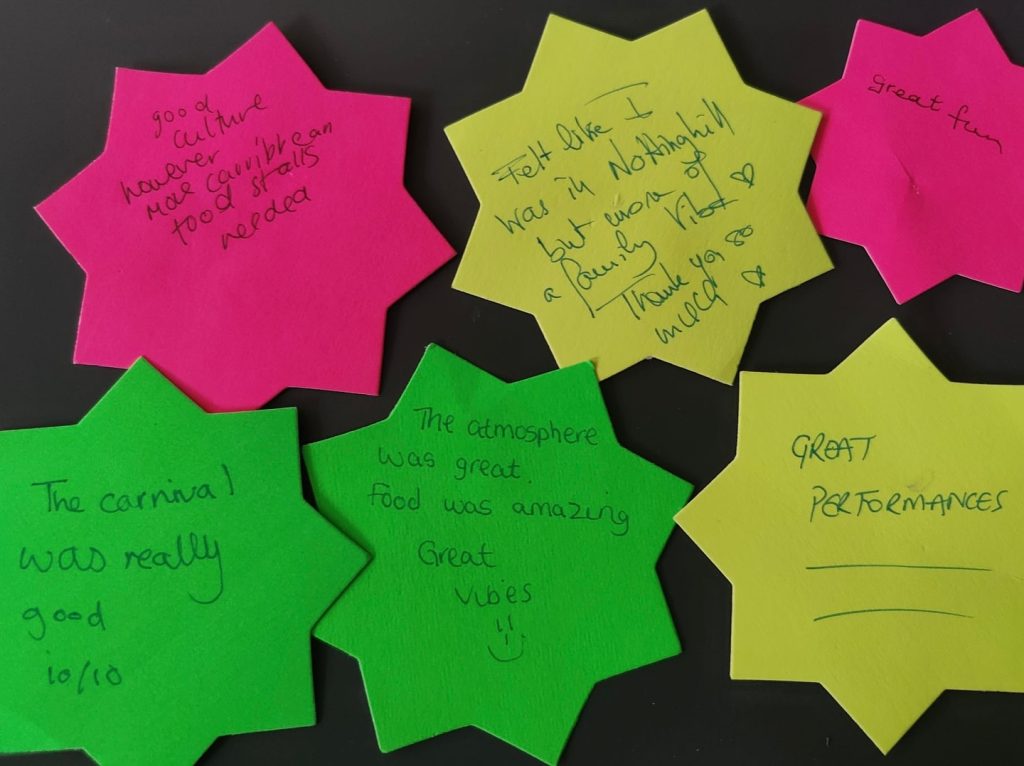 good
culture
however
more carribbean
food stalls
needed
Felt like I
was in Nottinghill
but more of
a family vibe
Thank you so
much
great fun
The carnival
was really
good
10/10
The atmosphere
was great.
Food was amazing
Great
vibes
GREAT
PERFORMANCES